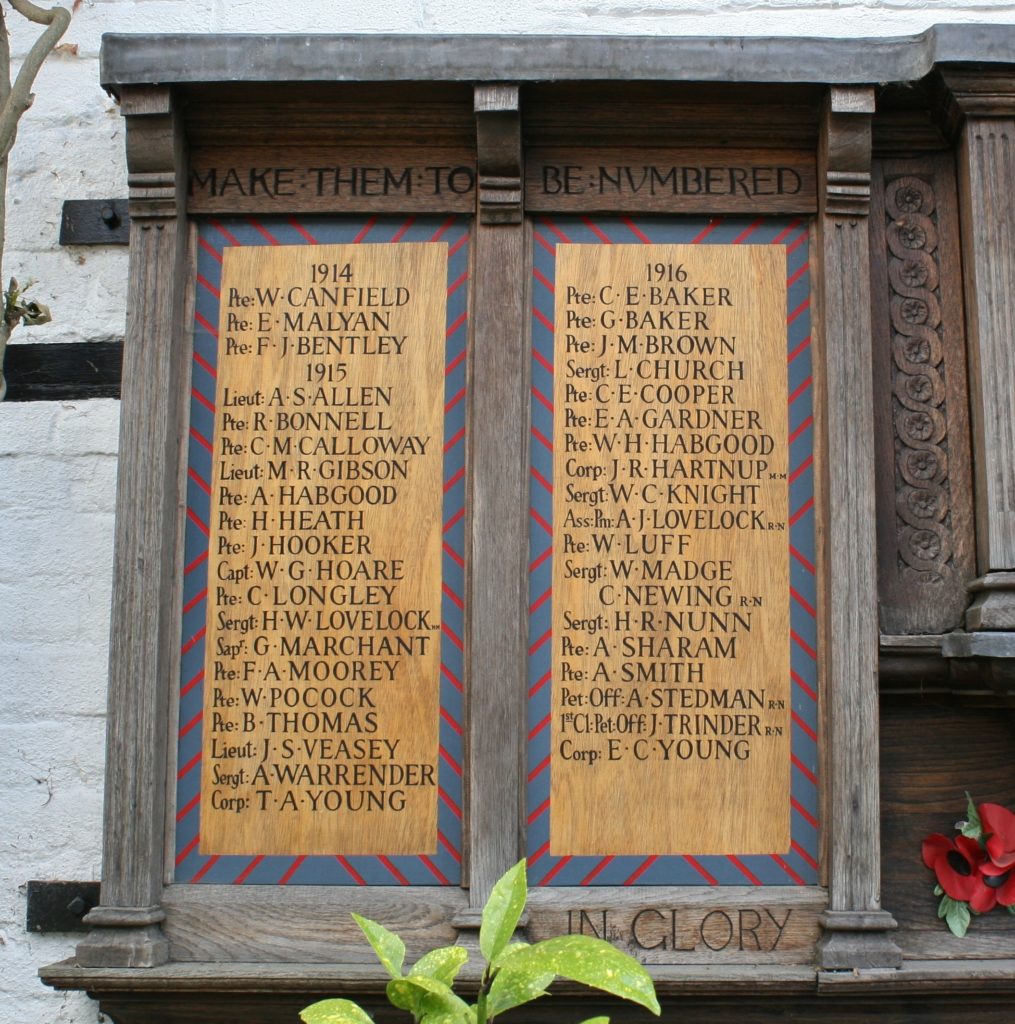 MAKE:THEM:TO BE:NVMBERED
1914
Pte: W·CANFIELD
Pte: E·MALYAN
Pte: F·J·BENTLEY
1915
Lieut: A·S·ALLEN
Pte: R·BONNELL
Pte: C·M·CALLOWAY
Lieut: M·R·GIBSON
Pte: A·HABGOOD
Pte: H·HEATH
Pte: J·HOOKER
Capt: W·G·HOARE
Pte: C·LONGLEY
Sergt: H·W·LOVELOCK
Sapr: G·MARCHANT
Pte: F·A·MOOREY
Pte: W·POCOCK
Pte: B·THOMAS
Lieut: J·S·VEASEY
Sergt: A·WARRENDER
Corp: T·A·YOUNG
1916
Pte: C·E·BAKER
Pte: G·BAKER
Pte: J·M·BROWN
Sergt: L·CHURCH
Pte: C·E·COOPER
Pte: E·A·GARDNER
Pte: W·H·HABGOOD
Corp: J·R·HARTNUP M·M
Sergt: W·C·KNIGHT
Ass:Pm: A·J·LOVELOCK R·N
Pte: W·LUFF
Sergt: W·MADGE
C·NEWING R·N
Sergt: H·R·NUNN
Pte: A·SHARAM
Pte: A·SMITH
Pet:Off: A·STEDMAN R·N
1st Cl·Pet:Off: J·TRINDER R·N
Corp: E·C·YOUNG
IN GLORY